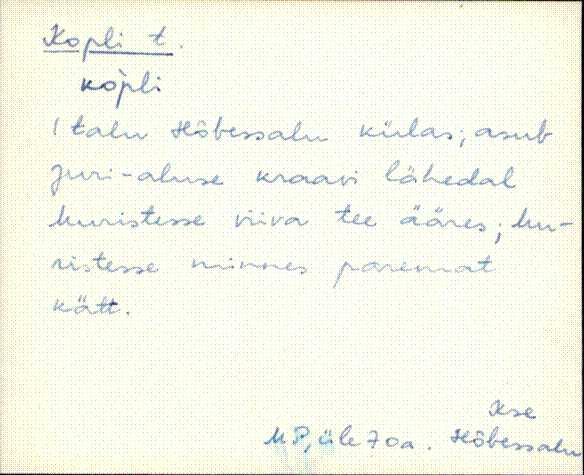 Kopli t.
kòpli
1 talu Hõbessalu külas; asub
Juri-aluse kraavi lähedal
kuristesse viiva tee ääres; ku-
ristesse minnes paremat
kätt.
Kse
MP, üle 70a. Hõbessalu